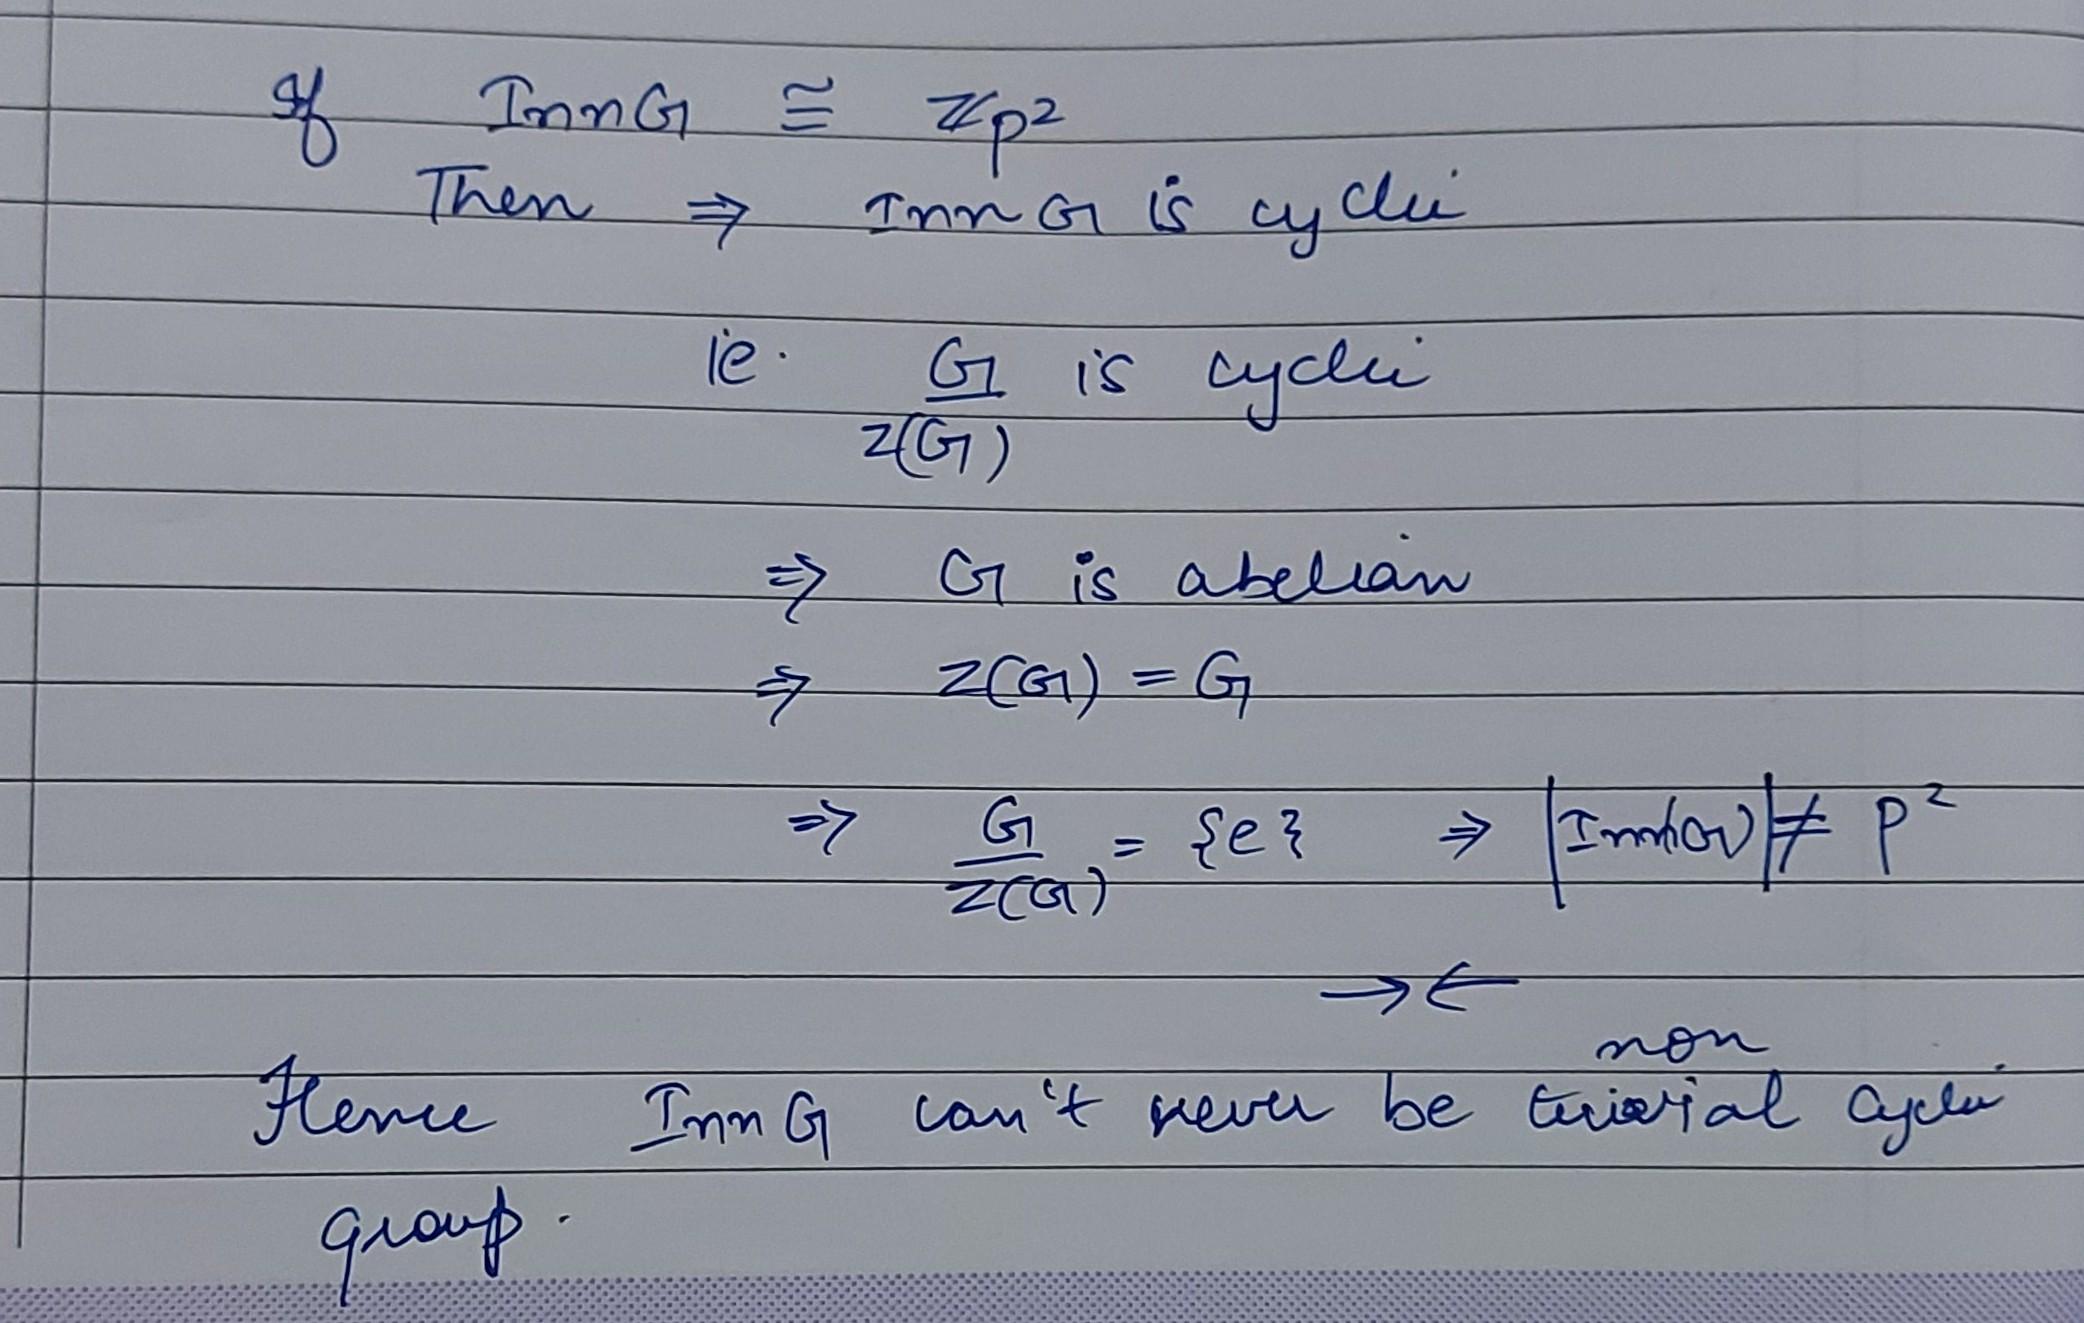 If Inn G ≅ ℤp²
Then ⇒ Inn G is cyclic
ie. G/Z(G) is cyclic
⇒ G is abelian
⇒ Z(G) = G
⇒ G/Z(G) = {e} ⇒ |Inn(G)| ≠ p²
→←
non
Hence Inn G can't never be trivial cyclic
group.